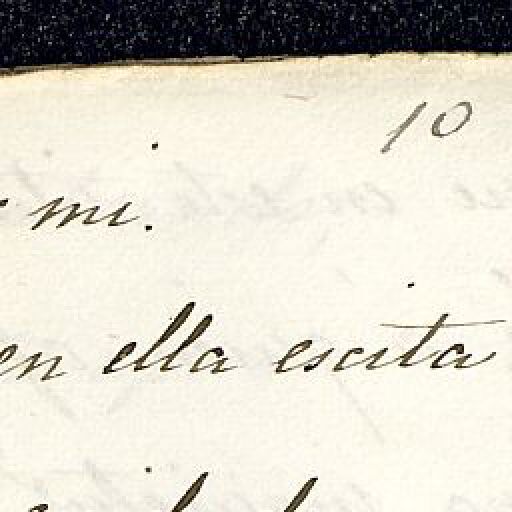 10
mi.
en ella escita